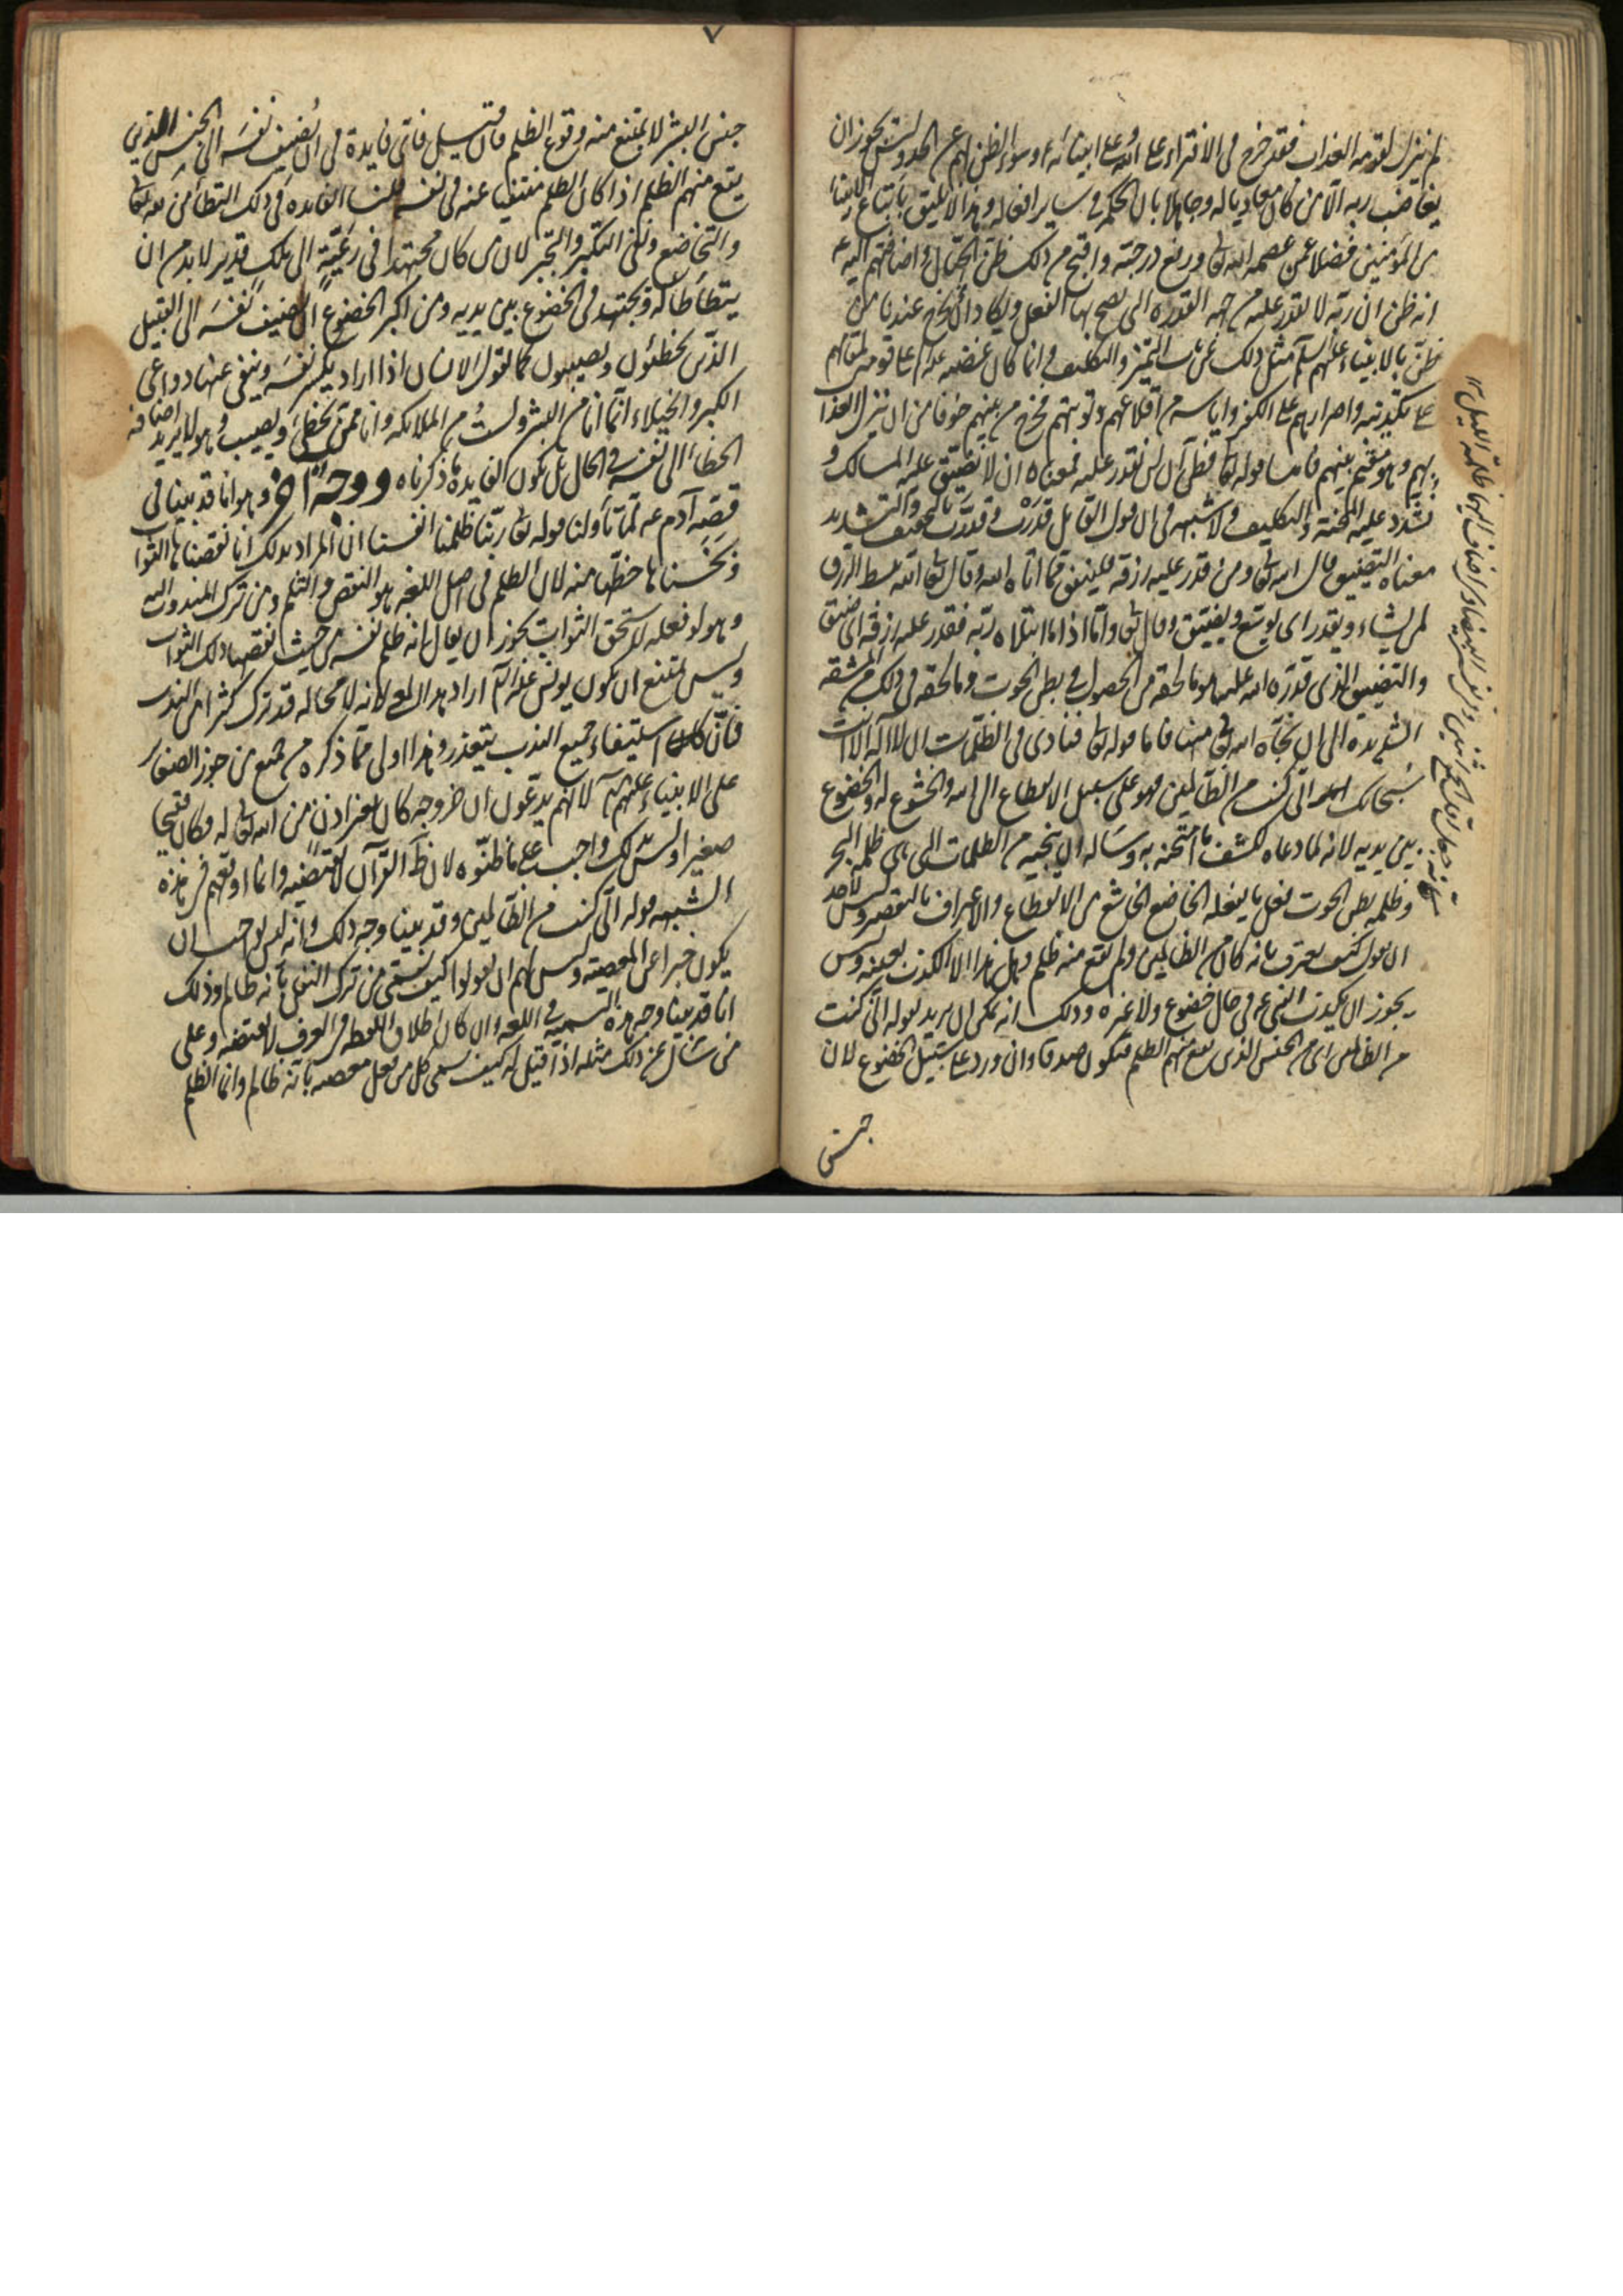 لم ينزل لقومه العذاب فقد خرج في الافتراء على الله وعلى انبيائه وسوء الظن بهم عن الحد وليس يجوز ان
يغاضب ربه الا من كان معاديا له وجاهلا بان الحكمة في ساير افعاله وهذا لا يليق باتباع الانبياء
من المؤمنين فضلا عمن عصمه الله تع ورفع درجته واقبح من ذلك ظن الجهال واضافتهم اليه ع
انه ظن ان ربه لا يقدر عليه من جهة القدرة التي يصح بها الفعل ويكاد ان يخرج عندنا من
ظن بالانبياء عليهم السلم مثل ذلك عن باب التميز والتكليف وانما كان غضبه ع على قومه لمقامهم
على تكذيبه واصرارهم على الكفر واياسه من اقلاعهم وتوبتهم فخرج من بينهم خوفا من ان ينزل العذاب
بهم وهو مقيم بينهم فاما قوله تع فظن ان لن نقدر عليه فمعناه ان لا نضيق عليه المسالك و
نشدد عليه المحنة والتكليف ولا شبهة في ان قول القايل قدرت وقدّرت بالتخفيف والتشديد
معناه التضييق قال الله تع ومن قدر عليه رزقه فلينفق مما اتاه الله وقال تع الله يبسط الرزق
لمن يشاء ويقدر اى يوسع ويضيق وقال تع واما اذا ما ابتلاه ربه فقدر عليه رزقه اى ضيق
والتضييق الذى قدره الله عليه هو ما لحقه من الحصول في بطن الحوت وما لحقه في ذلك من المشقة
الشديدة الى ان نجاه الله تع منها فاما قوله تع فنادى في الظلمات ان لا اله الا انت
سبحانك انى كنت من الظالمين فهو على سبيل الانقطاع الى الله والخشوع له والخضوع
بين يديه لانه لما دعاه لكشف ما امتحنه به وساله ان ينجيه من الظلمات التى هى ظلمة البحر
وظلمة بطن الحوت فعل ما يفعله الخاضع الخاشع من الانقطاع والاعتراف بالتقصير وليس لاحد
ان يقول كيف يعترف بانه كان من الظالمين ولم يقع منه ظلم وهل هذا الا الكذب بعينه وليس
يجوز ان يكذب النبى ع في حال خضوع ولا غيره وذلك انه يمكن ان يريد بقوله انى كنت
من الظالمين اى من الجنس الذى يقع منهم الظلم فيكون صدقا وان ورد على سبيل الخضوع لان
جنس
جنس البشر لا يمتنع منه وقوع الظلم فان قيل فاى فايدة في ان يضيف نفسه الى الجنس الذين
يقع منهم الظلم اذا كان الظلم منتفيا عنه في نفسه قلنا الفايدة في ذلك التطامن لله تع
والتخاضع ونفى التكبر والتجبر لان من كان مجتهدا في رغبة الى ملك قدير لا بد من ان
يتطاطا له ويجتهد في الخضوع بين يديه ومن اكبر الخضوع ان يضيف نفسه الى القبيل
الذين يخطئون ويصيبون كما تقول الانسان اذا اراد يكسر نفسه وينفى عنها دواعى
الكبر والخيلاء انما انا من البشر ولست من الملائكة وانا ممن يخطئ ويصيب وهو لا يريد اضافة
الخطاء الى نفسه في الحال بل يكون الفايدة ما ذكرناه ووجه اخر وهو انا قد بينا في
قصة آدم ع لما تاولنا قوله تع ربنا ظلمنا انفسنا ان المراد بذلك انا نقصناها الثواب
وبخسناها حظها منه لان الظلم في اصل اللغة هو النقص والثلم ومن ترك المندوب اليه
وهو لو فعله لاستحق الثواب يجوز ان يقال انه ظلم نفسه من حيث نقصها ذلك الثواب
وليس يمتنع ان يكون يونس عليه السلم اراد هذا المعنى لانه لا محالة قد ترك كثيرا من الندب
فان استيفاء جميع الندب يتعذر وهذا اولى مما ذكره من جوز الصغاير
على الانبياء عليهم السلم لانهم يدعون ان خروجه كان بغير اذن من الله تع له وكان قبيحا
صغيرا وليس ذلك واجب على ما ظنوه لان ظاهر القرآن لا يقتضيه وانما اوقعهم في هذه
الشبهة قوله انى كنت من الظالمين وقد بينا وجه ذلك وانه ليس بواجب ان
يكون خبرا عن المعصية وليس لهم ان يقولوا كيف يسمى من ترك النفل بانه ظالم وذلك
انا قد بينا وجه هذه التسمية في اللغة وان كان اطلاق اللفظة في العرف لا يقتضيه وعلى
من سال عن ذلك مثله اذا قيل له كيف يسمى كل من فعل معصية بانه ظالم وانما الظلم